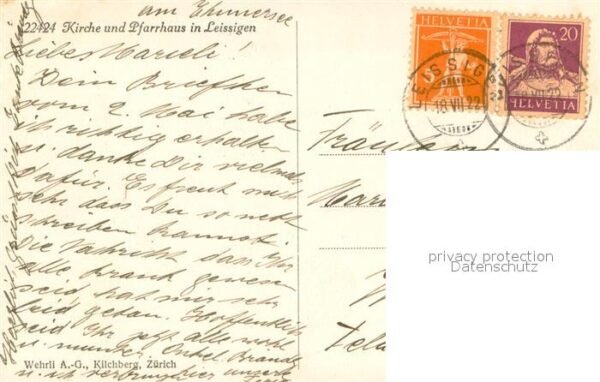 am Thunersee
22424 Kirche und Pfarrhaus in Leissigen
Liebes Marieli!
Dein Briefchen
vom 2. Mai habe
ich richtig erhalten
u. danke Dir vielmals
dafür. Es freut mich
sehr dass Du so nett
schreiben kannst.
Die Nachricht dass Ihr
alle krank gewesen
seid hat mir sehr
leid getan. Hoffentlich
seid Ihr jetzt alle wohl
u. munter. Onkel
u. ich verbringen unsere
Wehrli A.-G., Kilchberg, Zürich
HELVETIA
20
HELVETIA
LEISSIGEN
18.VII.22
LEISSIGEN
Fräulein
privacy protection
Datenschutz